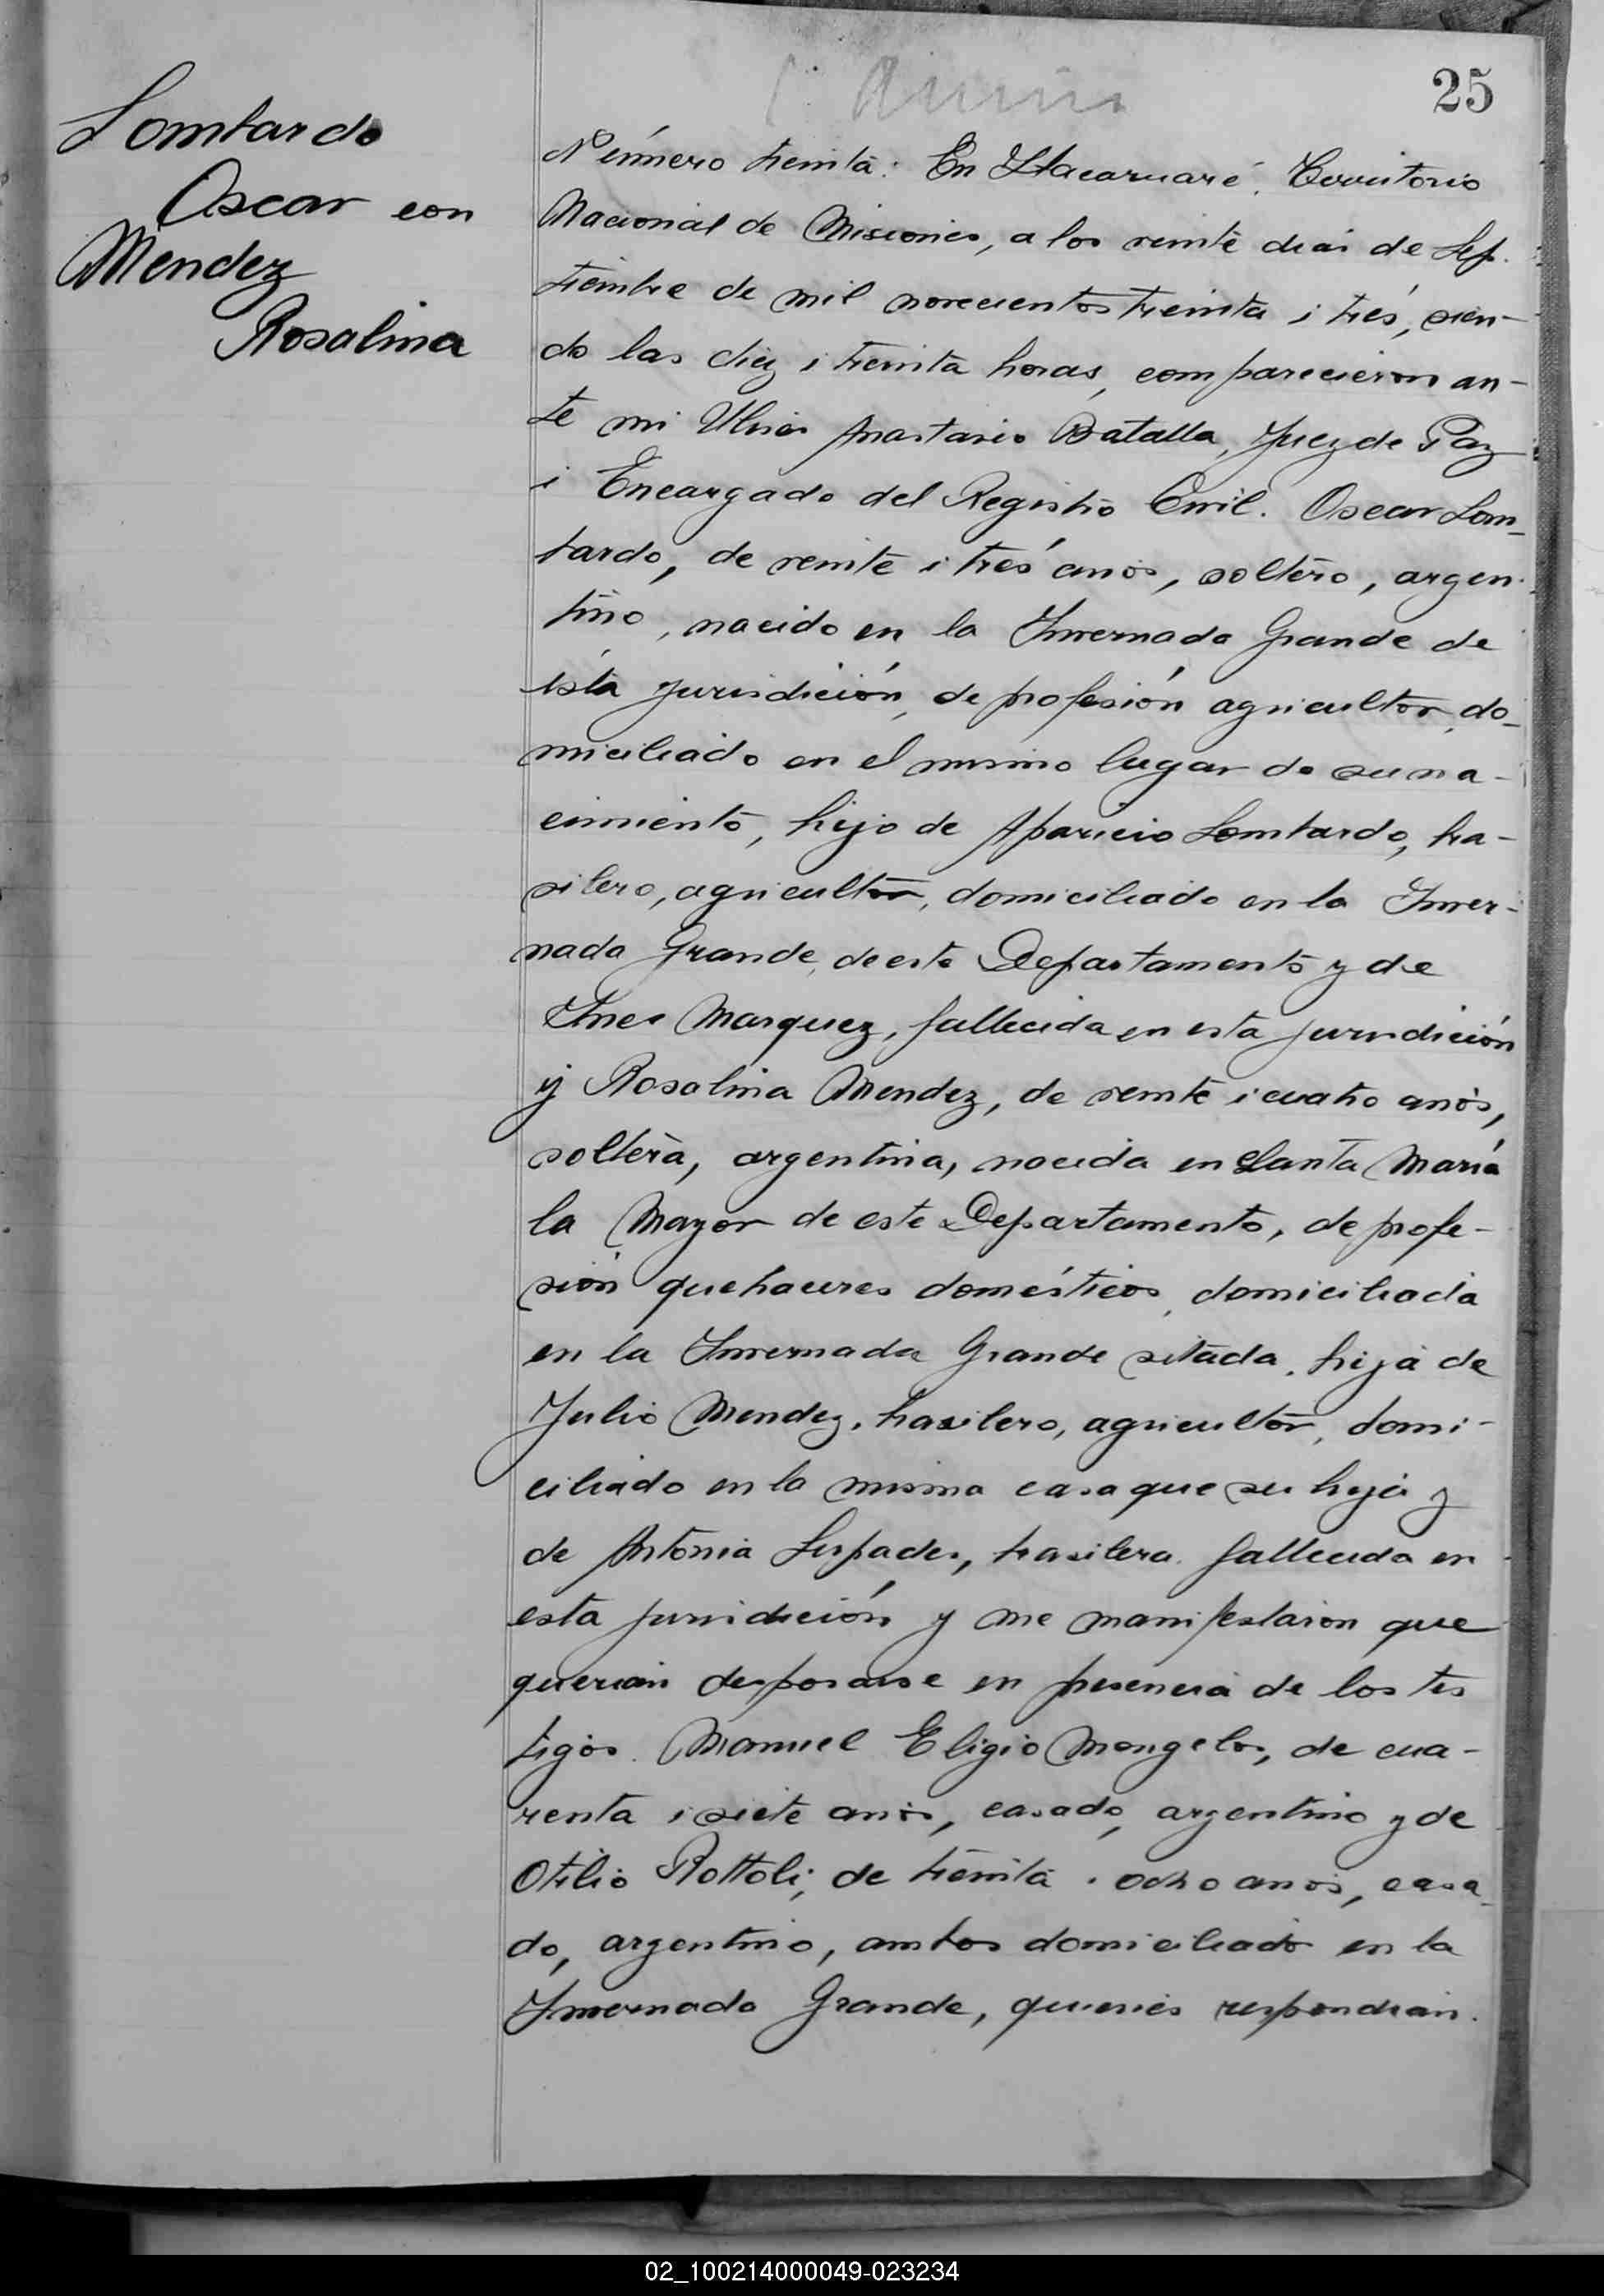 25
Lombardo
Oscar con
Mendez
Rosalina
Número treinta: En Itacaruaré, Territorio
Nacional de Misiones, a los veinte dias de Sep-
tiembre de mil novecientos treinta i trés, sien-
do las diez i treinta horas, comparecieron an-
te mi Ulises Anastasio Batalla, Juez de Paz
i Encargado del Registro Civil. Oscar Lom-
bardo, de veinte i trés años, soltero, argen-
tino, nacido en la Invernada Grande de
ésta jurisdición, de profesión agricultor, do-
miciliado en el mismo lugar de su na-
cimiento, hijo de Aparicio Lombardo, bra-
silero, agricultor, domiciliado en la Inver-
nada Grande, de este Departamento y de
Ines Marquez, fallecida en esta jurisdición
y Rosalina Mendez, de veinte i cuatro años,
soltera, argentina, nacida en Santa María
la Mayor de este Departamento, de profe-
sión quehaceres domésticos, domiciliada
en la Invernada Grande sitada, hija de
Julio Mendez, brasilero, agricultor, domi-
ciliado en la misma casa que su hija y
de Antonia brasilera, fallecida en
esta jurisdición y me manifestaron que
querian desposarse en presencia de los tes
tigos. Manuel Eligio Mongelos, de cua-
renta i siete años, casado, argentino y de
Otilio Rottoli, de treinta i ocho años, casa-
do, argentino, ambos domiciliados en la
Invernada Grande, quienes respondian.
02_100214000049-023234